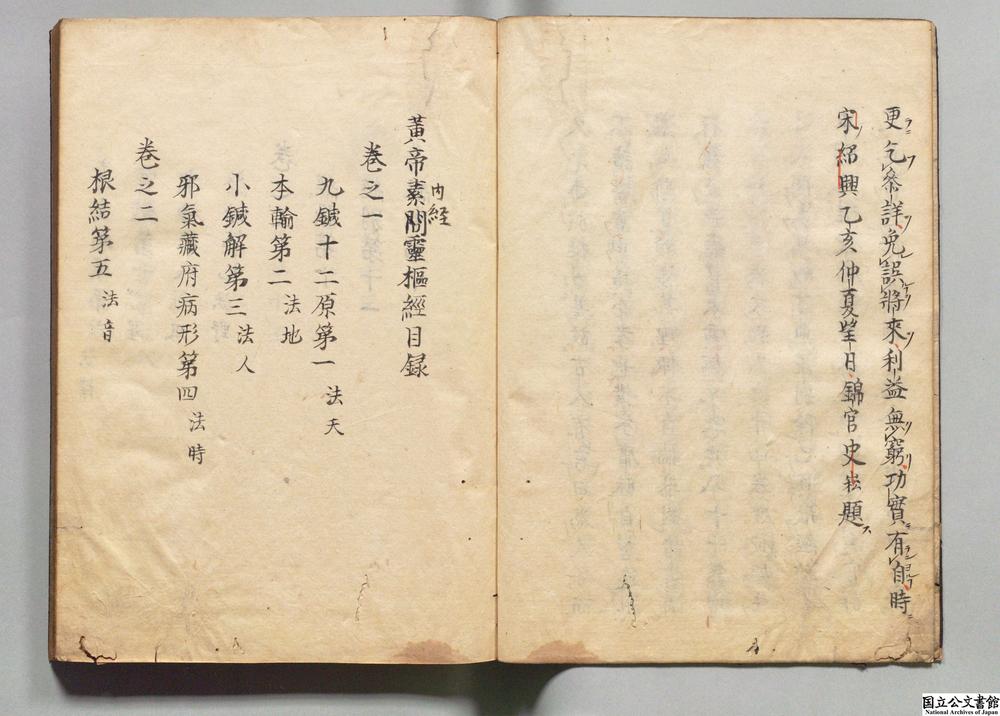 更乞叅詳免誤將來利益無窮功實有自時
宋紹興乙亥仲夏望日錦官史崧題
黃帝素問靈樞經目録
内経
巻之一
九鍼十二原第一 法天
本輸第二 法地
小鍼解第三 法人
邪氣藏府病形第四 法時
巻之二
根結第五 法音
国立公文書館
National Archives of Japan